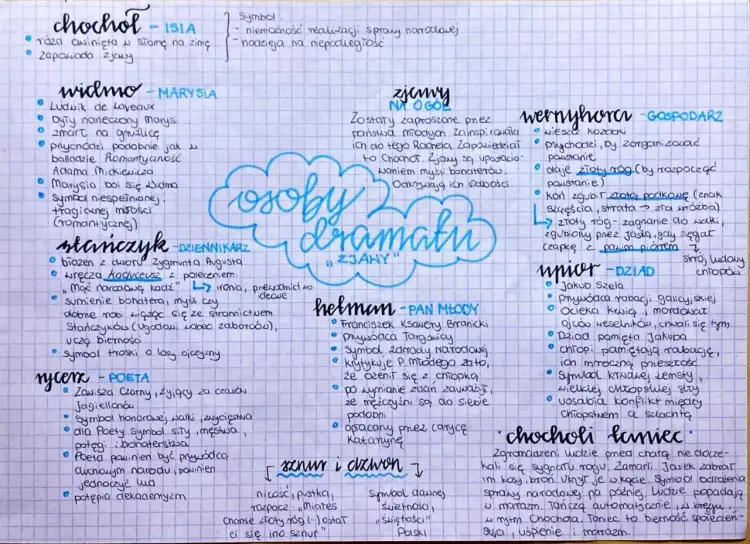 chochoł - ISIA
• róża owinięta w słomę na zimę
• zapowiada zjawy
Symbol:
- niemożność realizacji sprawy narodowej
- nadzieja na niepodległość
widmo - MARYSIA
• Ludwik de Laveaux
• były narzeczony Marysi
• zmarł na gruźlicę
• przychodzi podobnie jak w
balladzie Romantyczność
Adama Mickiewicza
• Marysia boi się widma
• symbol niespełnionej,
tragicznej miłości
(romantycznej)
stańczyk - DZIENNIKARZ
• błazen z dworu Zygmunta Augusta
• wręcza kaduceusz z poleceniem
"Mąć narodową kadź" ↳ ironia, przewodnictwo
ideowe
• sumienie bohatera, myśli czy
dobrze robi wiążąc się ze stronnictwem
Stańczyków (ugodowi wobec zaborców),
uczą bierności
• symbol troski o losy ojczyzny
rycerz - POETA
• Zawisza Czarny, żyjący za czasów
Jagiellonów
• symbol honorowej walki, zwycięstwa
• dla Poety symbol siły, męstwa,
potęgi i bohaterstwa
• Poeta powinien być przywódcą
duchowym narodu, powinien
jednoczyć lud
• potępia dekadentyzm
zjawy
NA OGÓŁ
Zostały zaproszone przez
państwa młodych. Zainspirowała
ich do tego Rachela. Zapowiedział
to Chochoł. Zjawy są uosabio-
waniem myśli bohaterów.
Odkrywają ich słabości.
osoby
dramatu
"ZJAWY"
hetman - PAN MŁODY
• Franciszek Ksawery Branicki
• przywódca Targowicy
• Symbol zdrady narodowej
• krytykuje P. Młodego za to,
że ożenił się z chłopką
• po wymianie zdań zauważył,
że mężczyźni są do siebie
podobni
• opłacany przez carycę
Katarzynę
sznur i dzwon
nicość, pustka,
rozpacz, "Miałeś
chamie złoty róg (-) ostał
ci się ino sznur"
symbol dawnej
świetności,
"świętości"
Polski
wernyhora - GOSPODARZ
• wieszcz kozacki
• przychodzi, by zorganizować
powstanie
• daje złoty róg (by rozpocząć
powstanie)
• koń zgubił złotą podkowę (znak
szczęścia, strata → zła wróżba)
↳ złoty róg - zagrzanie do walki,
zgubiony przez Jaśka, gdy sięgał
czapkę z pawim piórem →
strój ludowy
chłopów
upiór - DZIAD
• Jakub Szela
• przywódca rabacji galicyjskiej
• Ocieka krwią i mordował
ojców weselników, chwali się tym
• Dziad pamięta Jakuba
• chłopi pamiętają rabację,
ich mroczną przeszłość
• Symbol krwawej zemsty,
wielkiej chłopskiej siły
• uosabia konflikt między
chłopstwem a szlachtą
• chocholi taniec •
Zgromadzeni ludzie przed chatą nie docze-
kali się sygnału rogu. Zamarli. Jasiek zabrał
im kosy, broń. Ukrył je w kącie. Symbol odłożenia
sprawy narodowej na później. Ludzie popadają
w marazm. Tańczą automatycznie, w kręgu i
w rytm Chochoła. Taniec to bierność społeczeń-
stwa, uśpienie i marazm.